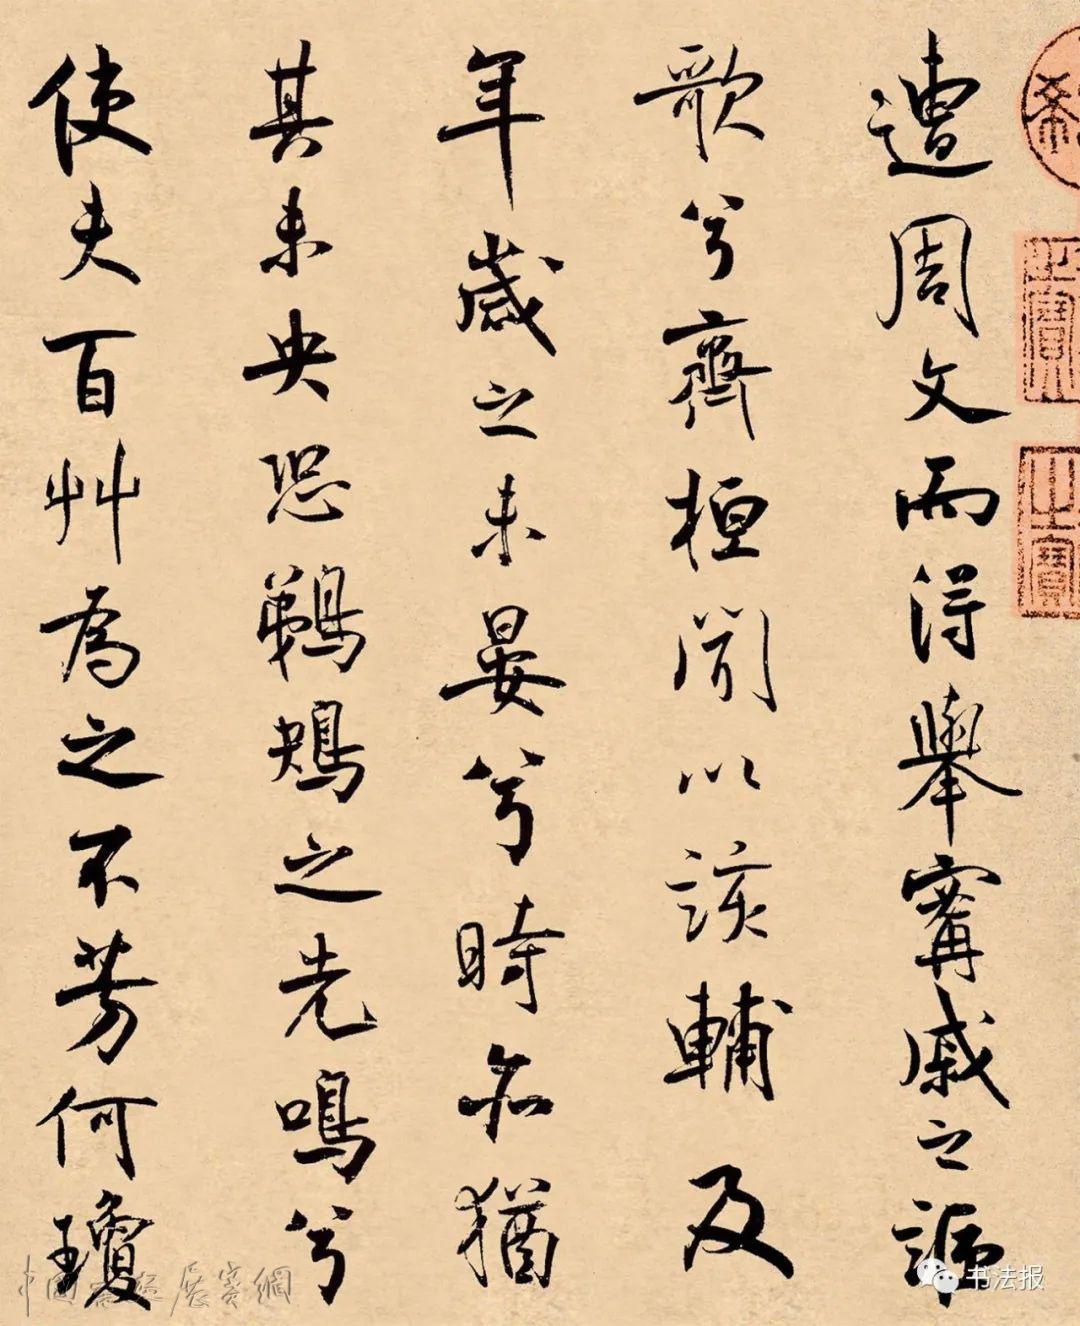 遭周文而得舉寗戚之謳
歌兮齊桓聞以該輔及
年歲之未晏兮時亦猶
其未央恐鵜鴂之先鳴兮
使夫百艸為之不芳何瓊
之寶
书法报